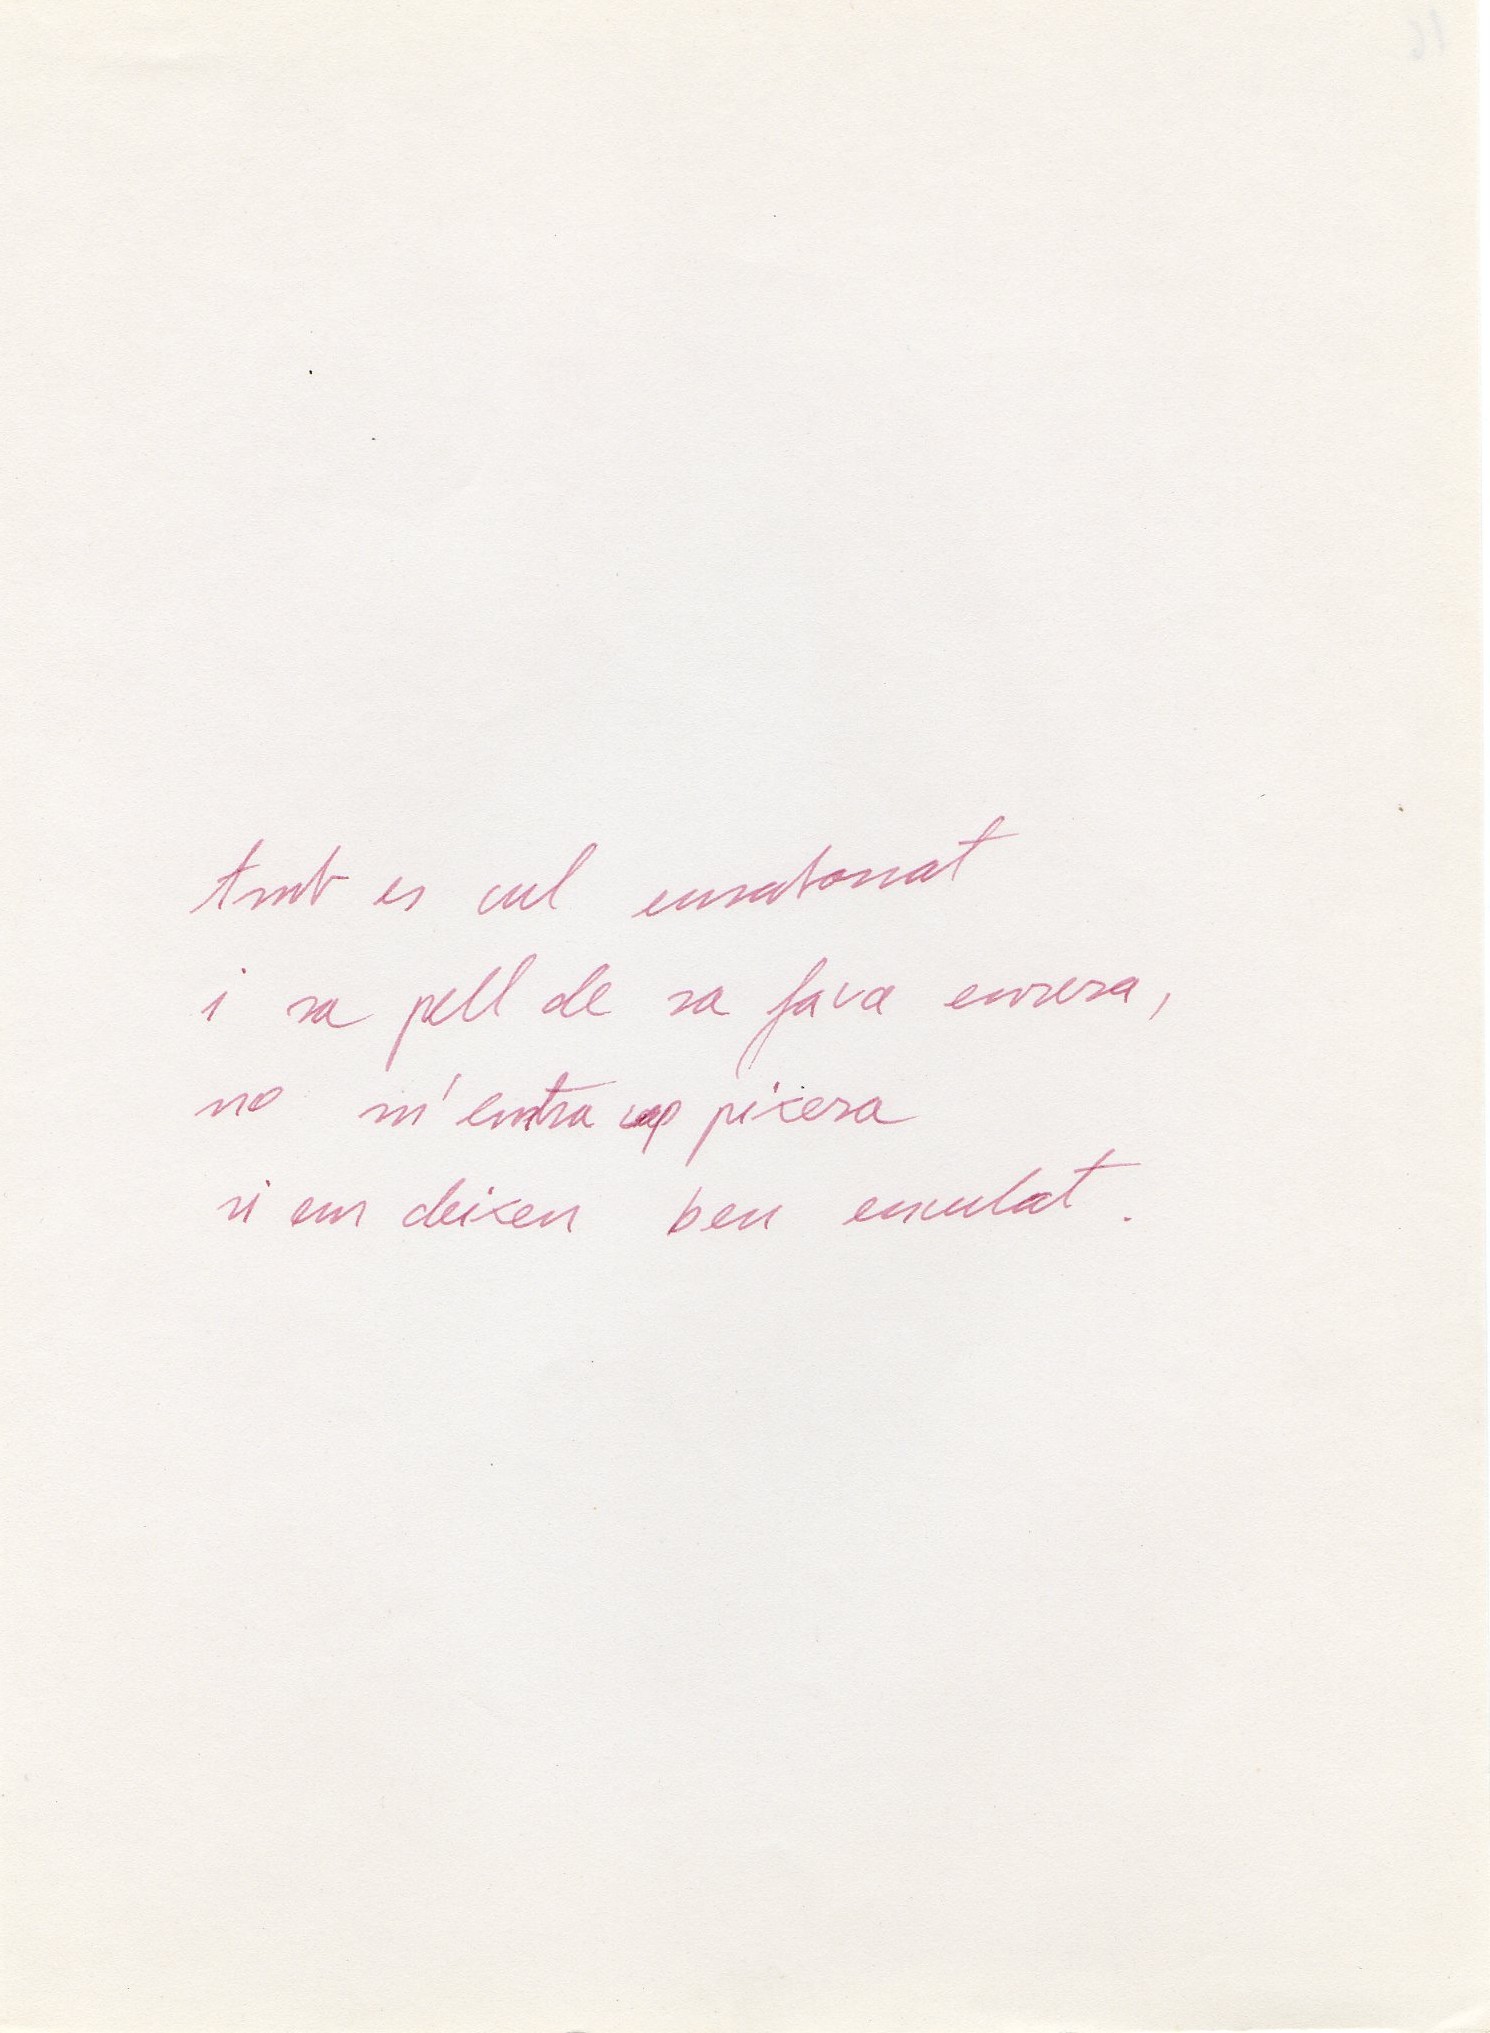 Amb es cul ensabonat
i sa pell de sa fava enrera,
no m'entra cap pixera
si em deixen ben enculat.